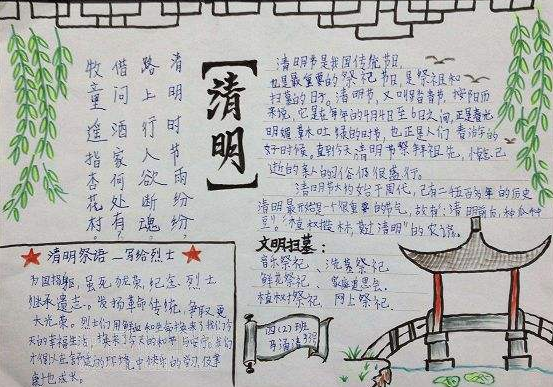 清明时节雨纷纷,
路上行人欲断魂。
借问酒家何处有,
牧童遥指杏花村。
【清明】
清明节是我国传统节日,
也是最重要的祭祀节日,是祭祖和
扫墓的日子。清明节,又叫踏青节,按阳历
来说,它是在每年的4月4日至6日之间,正是春光
明媚草木吐绿的时节,也正是人们春游的
好时候,直到今天清明节祭拜祖先,悼念已
逝的亲人的习俗仍很盛行。
清明节大约始于周代,已有二千五百多年的历史
清明最开始是一个很重要的节气,故有:清明前后,种瓜种
豆。"植树
清明"的农谚。
文明扫墓:
音乐祭祀、洗墓祭祀
鲜花祭祀、家庭追思会、
植树祭祀、网上祭祀。
清明祭语—写给烈士
为国捐躯,虽死犹荣,纪念烈士
继承遗志。发扬革命传统,争取更
大光荣。烈士们用鲜血和生命换来了我们今
天的幸福生活,换来了今天的和平与安宁。我们
才得以在舒适的环境中快乐的学习
四(2)班